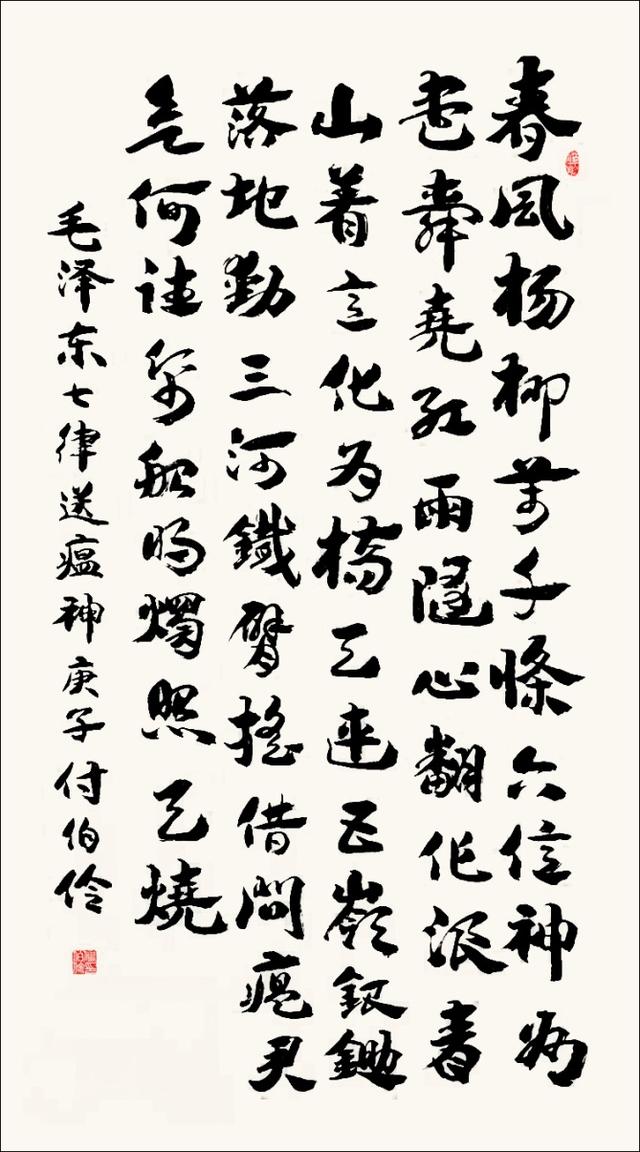 春風杨柳萬千條六億神州
尽舜堯红雨隨心翻作浪青
山着意化为橋天連五嶺銀鋤
落地動三河鐵臂摇借問瘟君
欲何往紙船明燭照天燒
毛泽东七律送瘟神庚子付伯伶